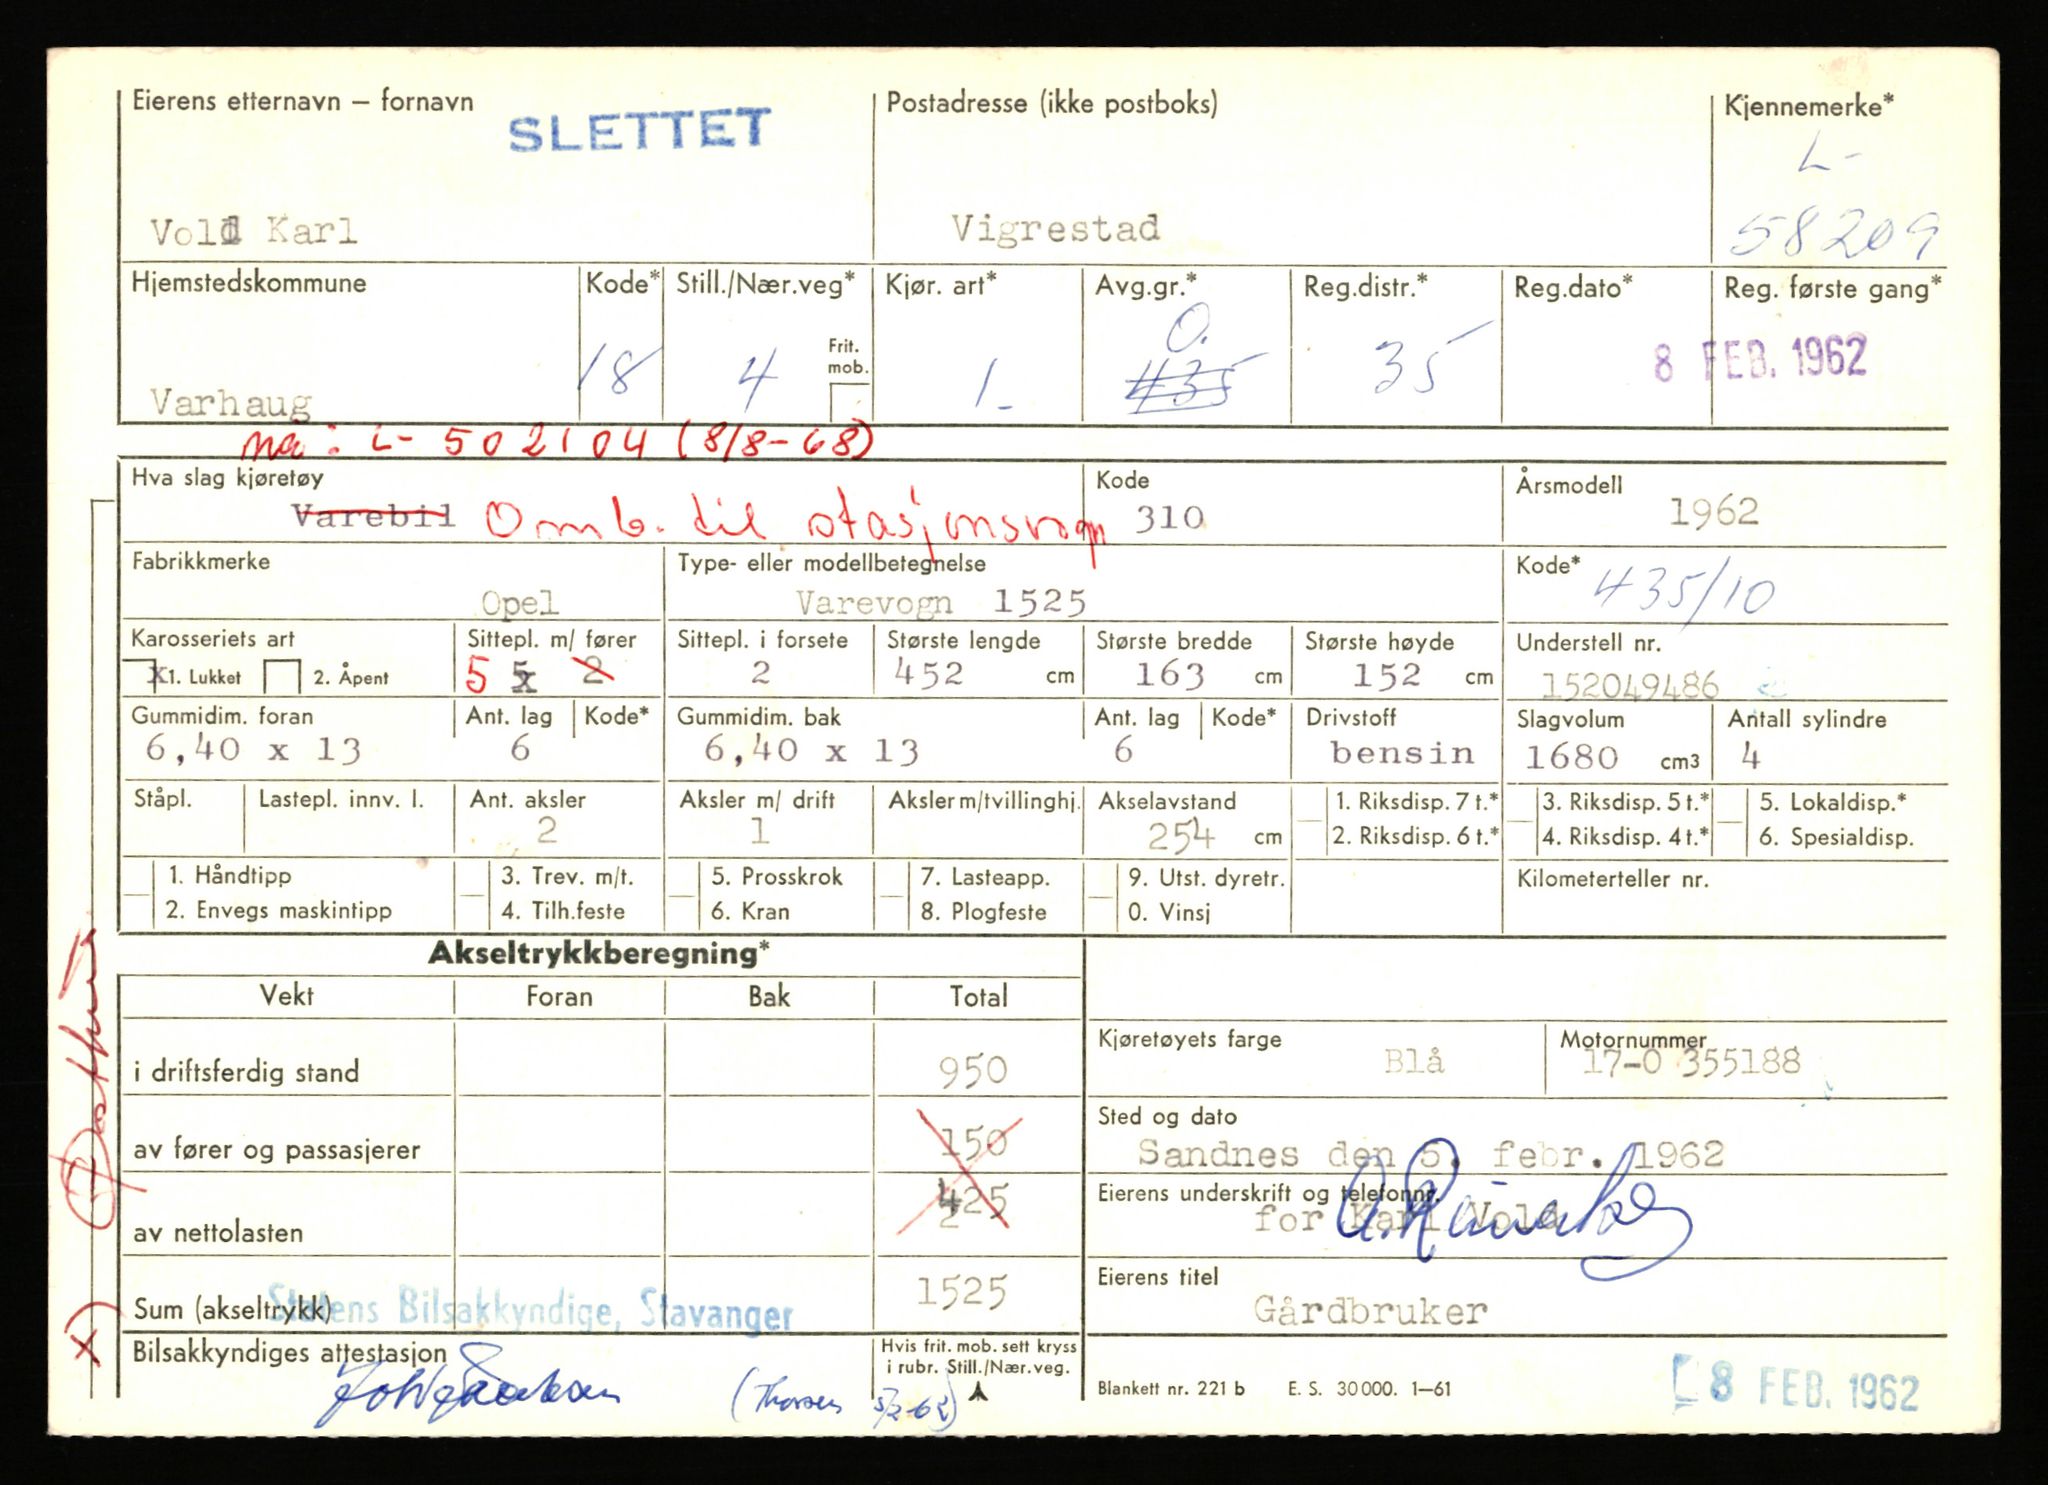 Eierens etternavn – fornavn SLETTET Postadresse (ikke postboks) Kjennemerke*
L-
Vold Karl Vigrestad 58209
Hjemstedskommune Kode* Still./Nær.veg* Kjør. art* Avg.gr.* Reg.distr.* Reg.dato* Reg. første gang*
0.
Frit. mob.
Varhaug 18 4 1- 435 35 8 FEB. 1962
nå: L- 502104 (8/8-68)
Hva slag kjøretøy Kode Årsmodell
Varebil Omb. til stasjonsvogn 310 1962
Fabrikkmerke Type- eller modellbetegnelse Kode* 435/10
Opel Varevogn 1525
Karosseriets art Sittepl. m/ fører Sittepl. i forsete Største lengde Største bredde Største høyde Understell nr.
x 1. Lukket 2. Åpent 5 5 2 2 452 cm 163 cm 152 cm 152049486
Gummidim. foran Ant. lag Kode* Gummidim. bak Ant. lag Kode* Drivstoff Slagvolum Antall sylindre
6,40 x 13 6 6,40 x 13 6 bensin 1680 cm3 4
Ståpl. Lastepl. innv. l. Ant. aksler Aksler m/ drift Aksler m/tvillinghj. Akselavstand 1. Riksdisp. 7 t.* 3. Riksdisp. 5 t.* 5. Lokaldisp.*
2 1 254 cm 2. Riksdisp. 6 t.* 4. Riksdisp. 4 t.* 6. Spesialdisp.
1. Håndtipp 3. Trev. m/t. 5. Prosskrok 7. Lasteapp. 9. Utst. dyretr. Kilometerteller nr.
2. Envegs maskintipp 4. Tilh.feste 6. Kran 8. Plogfeste 0. Vinsj
Akseltrykkberegning*
Vekt Foran Bak Total
Kjøretøyets farge Blå Motornummer 17-0 355188
i driftsferdig stand 950
Sted og dato
av fører og passasjerer 150 Sandnes den 5. febr. 1962
Eierens underskrift og telefonnr.
av nettolasten 425 for Karl Vold
Eierens titel
Sum (akseltrykk) Statens Bilsakkyndige, Stavanger 1525 Gårdbruker
Bilsakkyndiges attestasjon Hvis frit. mob. sett kryss i rubr. Still./Nær.veg.
(Thorsen 5/2-62) Blankett nr. 221 b E. S. 30000. 1–61 8 FEB. 1962